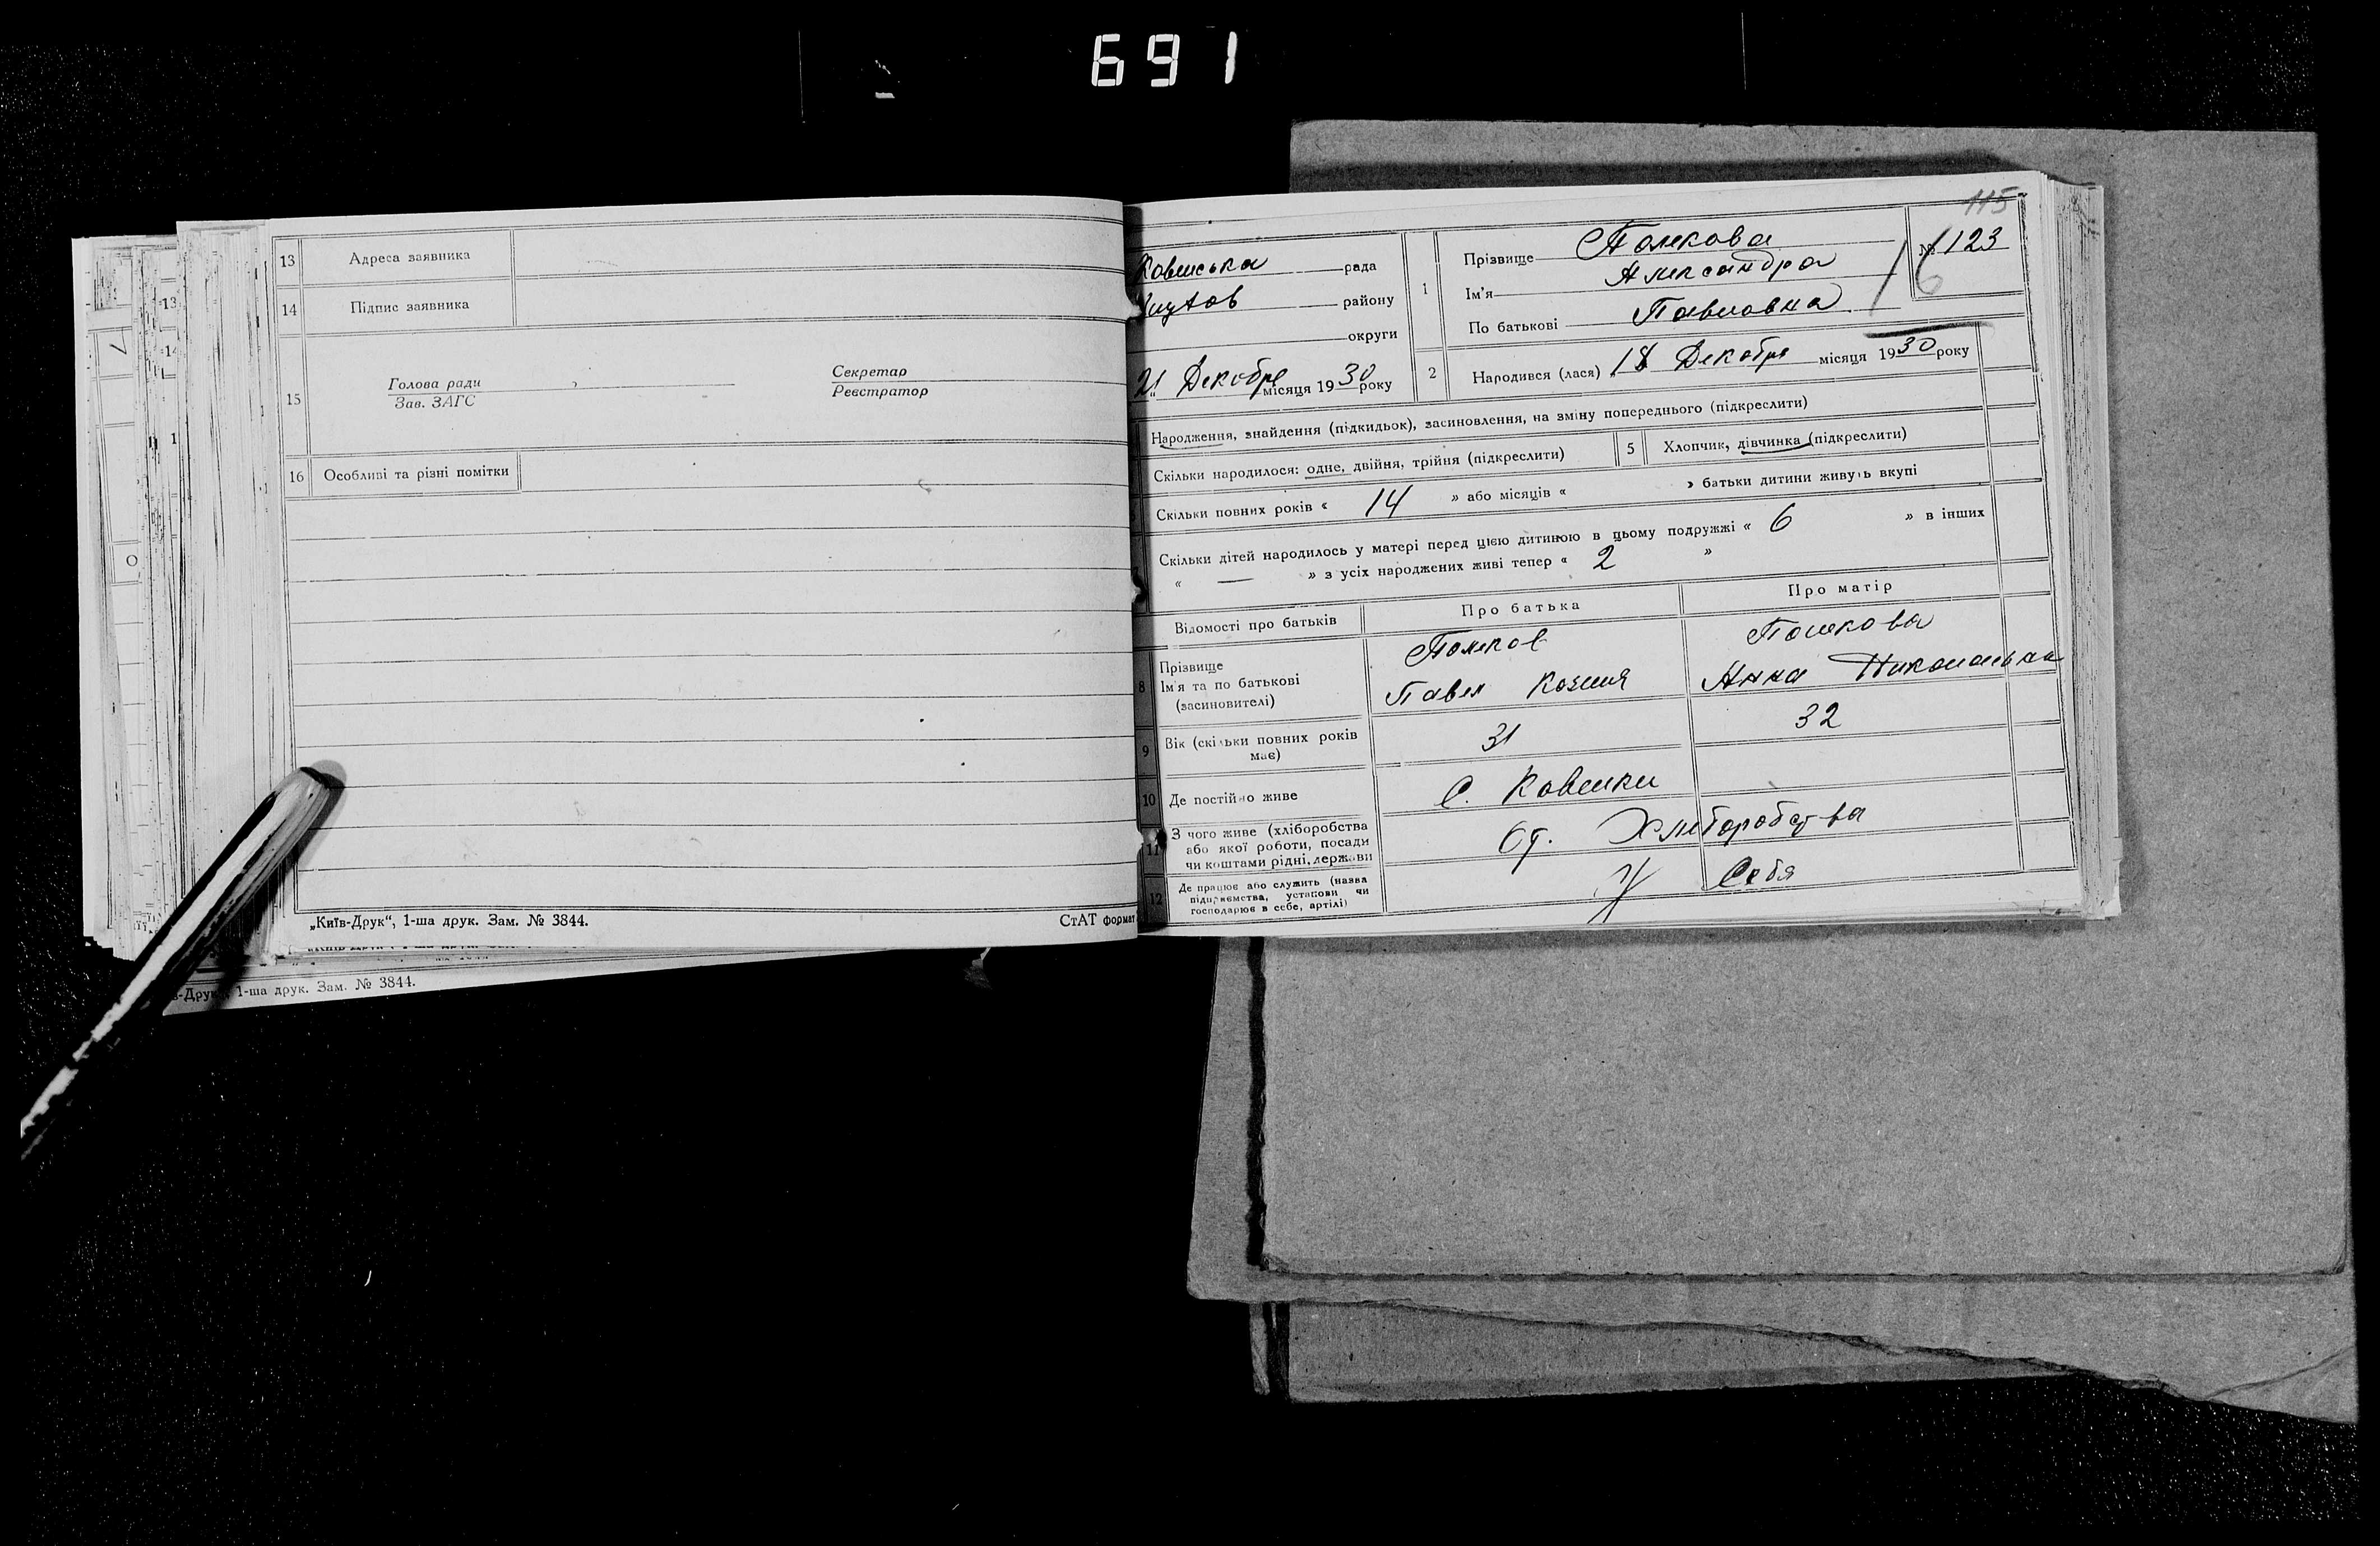 691
13 Адреса заявника
14 Підпис заявника
15 Голова ради
Зав. ЗАГС
Секретар
Реєстратор
16 Особливі та різні помітки
„Київ-Друк“, 1-ша друк. Зам. № 3844.
СтАТ формат
1-ша друк. Зам. № 3844.
115
рада
району
округи
21 Декобря місяця 1930 року
1 Прізвище
Ім'я Александра
По батькові Павловна
№ 123
2 Народився (лася) 18 Декобря місяця 1930 року
Народження, знайдення (підкидьок), засиновлення, на зміну попереднього (підкреслити)
Скільки народилося: одне, двійня, трійня (підкреслити)
5 Хлопчик, дівчинка (підкреслити)
Скільки повних років « 14 » або місяців « » батьки дитини живуть вкупі
Скільки дітей народилось у матері перед цією дитиною в цьому подружжі « 6 » в інших
« — » з усіх народжених живі тепер « 2 »
Відомості про батьків
Про батька
Про матір
8 Прізвище
Ім'я та по батькові
(засиновителі)
Павел
Анна
9 Вік (скільки повних років
має)
31
32
10 Де постійно живе
11 З чого живе (хліборобства
або якої роботи, посади
чи коштами рідні, держави
От. Хлеборобства
12 Де працює або служить (назва
підприємства, установи чи
господарює в себе, артілі)
У Себя